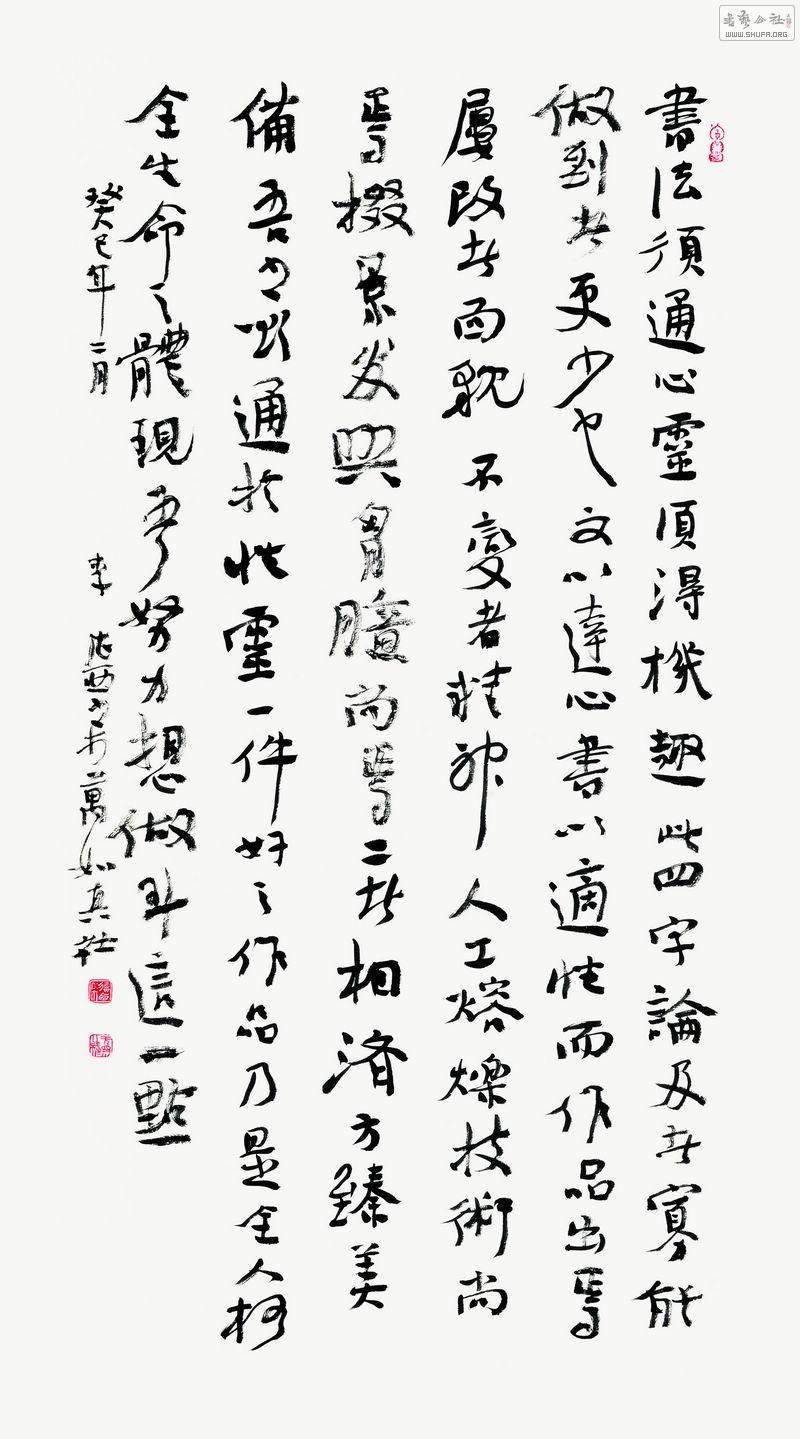 書法須通心靈須得機趣此四字論及者寡能
做到者更少也文以達心書以適性而作品出焉
屢改者面貌不變者精神人工熔爍技術尚
焉掇景發興胃臆尚焉二者相濟方臻美
備吾書必通於性靈一件好之作品乃是全人格
全生命之體現吾努力想做到這一點
癸巳年二月
李 萬如真社
書藝公社
WWW.SHUFA.ORG